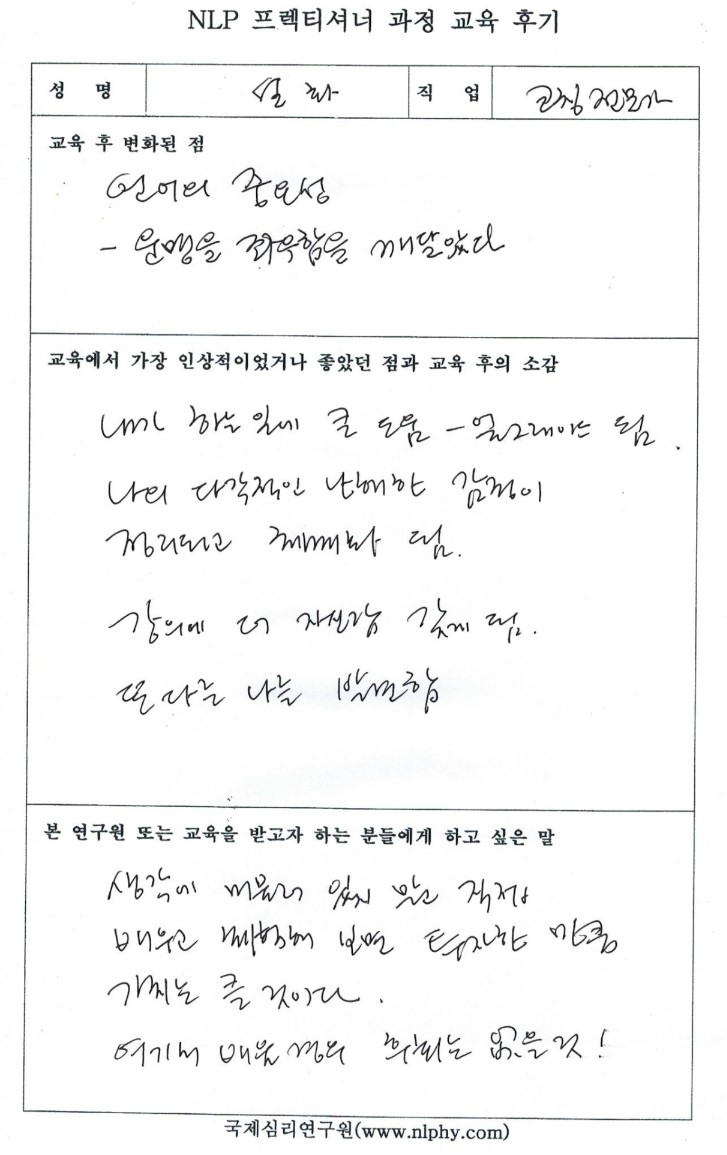 NLP 프렉티셔너 과정 교육 후기
성 명 설 화 직 업 코칭 전문가
교육 후 변화된 점
언어의 중요성
- 운명을 좌우함을 깨달았다
교육에서 가장 인상적이었거나 좋았던 점과 교육 후의 소감
내가 하는 일에 큰 도움 - 업그레이드 됨.
나의 다각적인 난해한 감정이
정리되고 됨.
강의에 더 자신감 갖게 됨.
또 다른 나를 발견함
본 연구원 또는 교육을 받고자 하는 분들에게 하고 싶은 말
생각에 머물러 있지 말고 직접
배우고 체험해 보면 투자한 만큼
가치는 클 것이다.
여기서 배울 경우 후회는 없을 것!
국제심리연구원(www.nlphy.com)